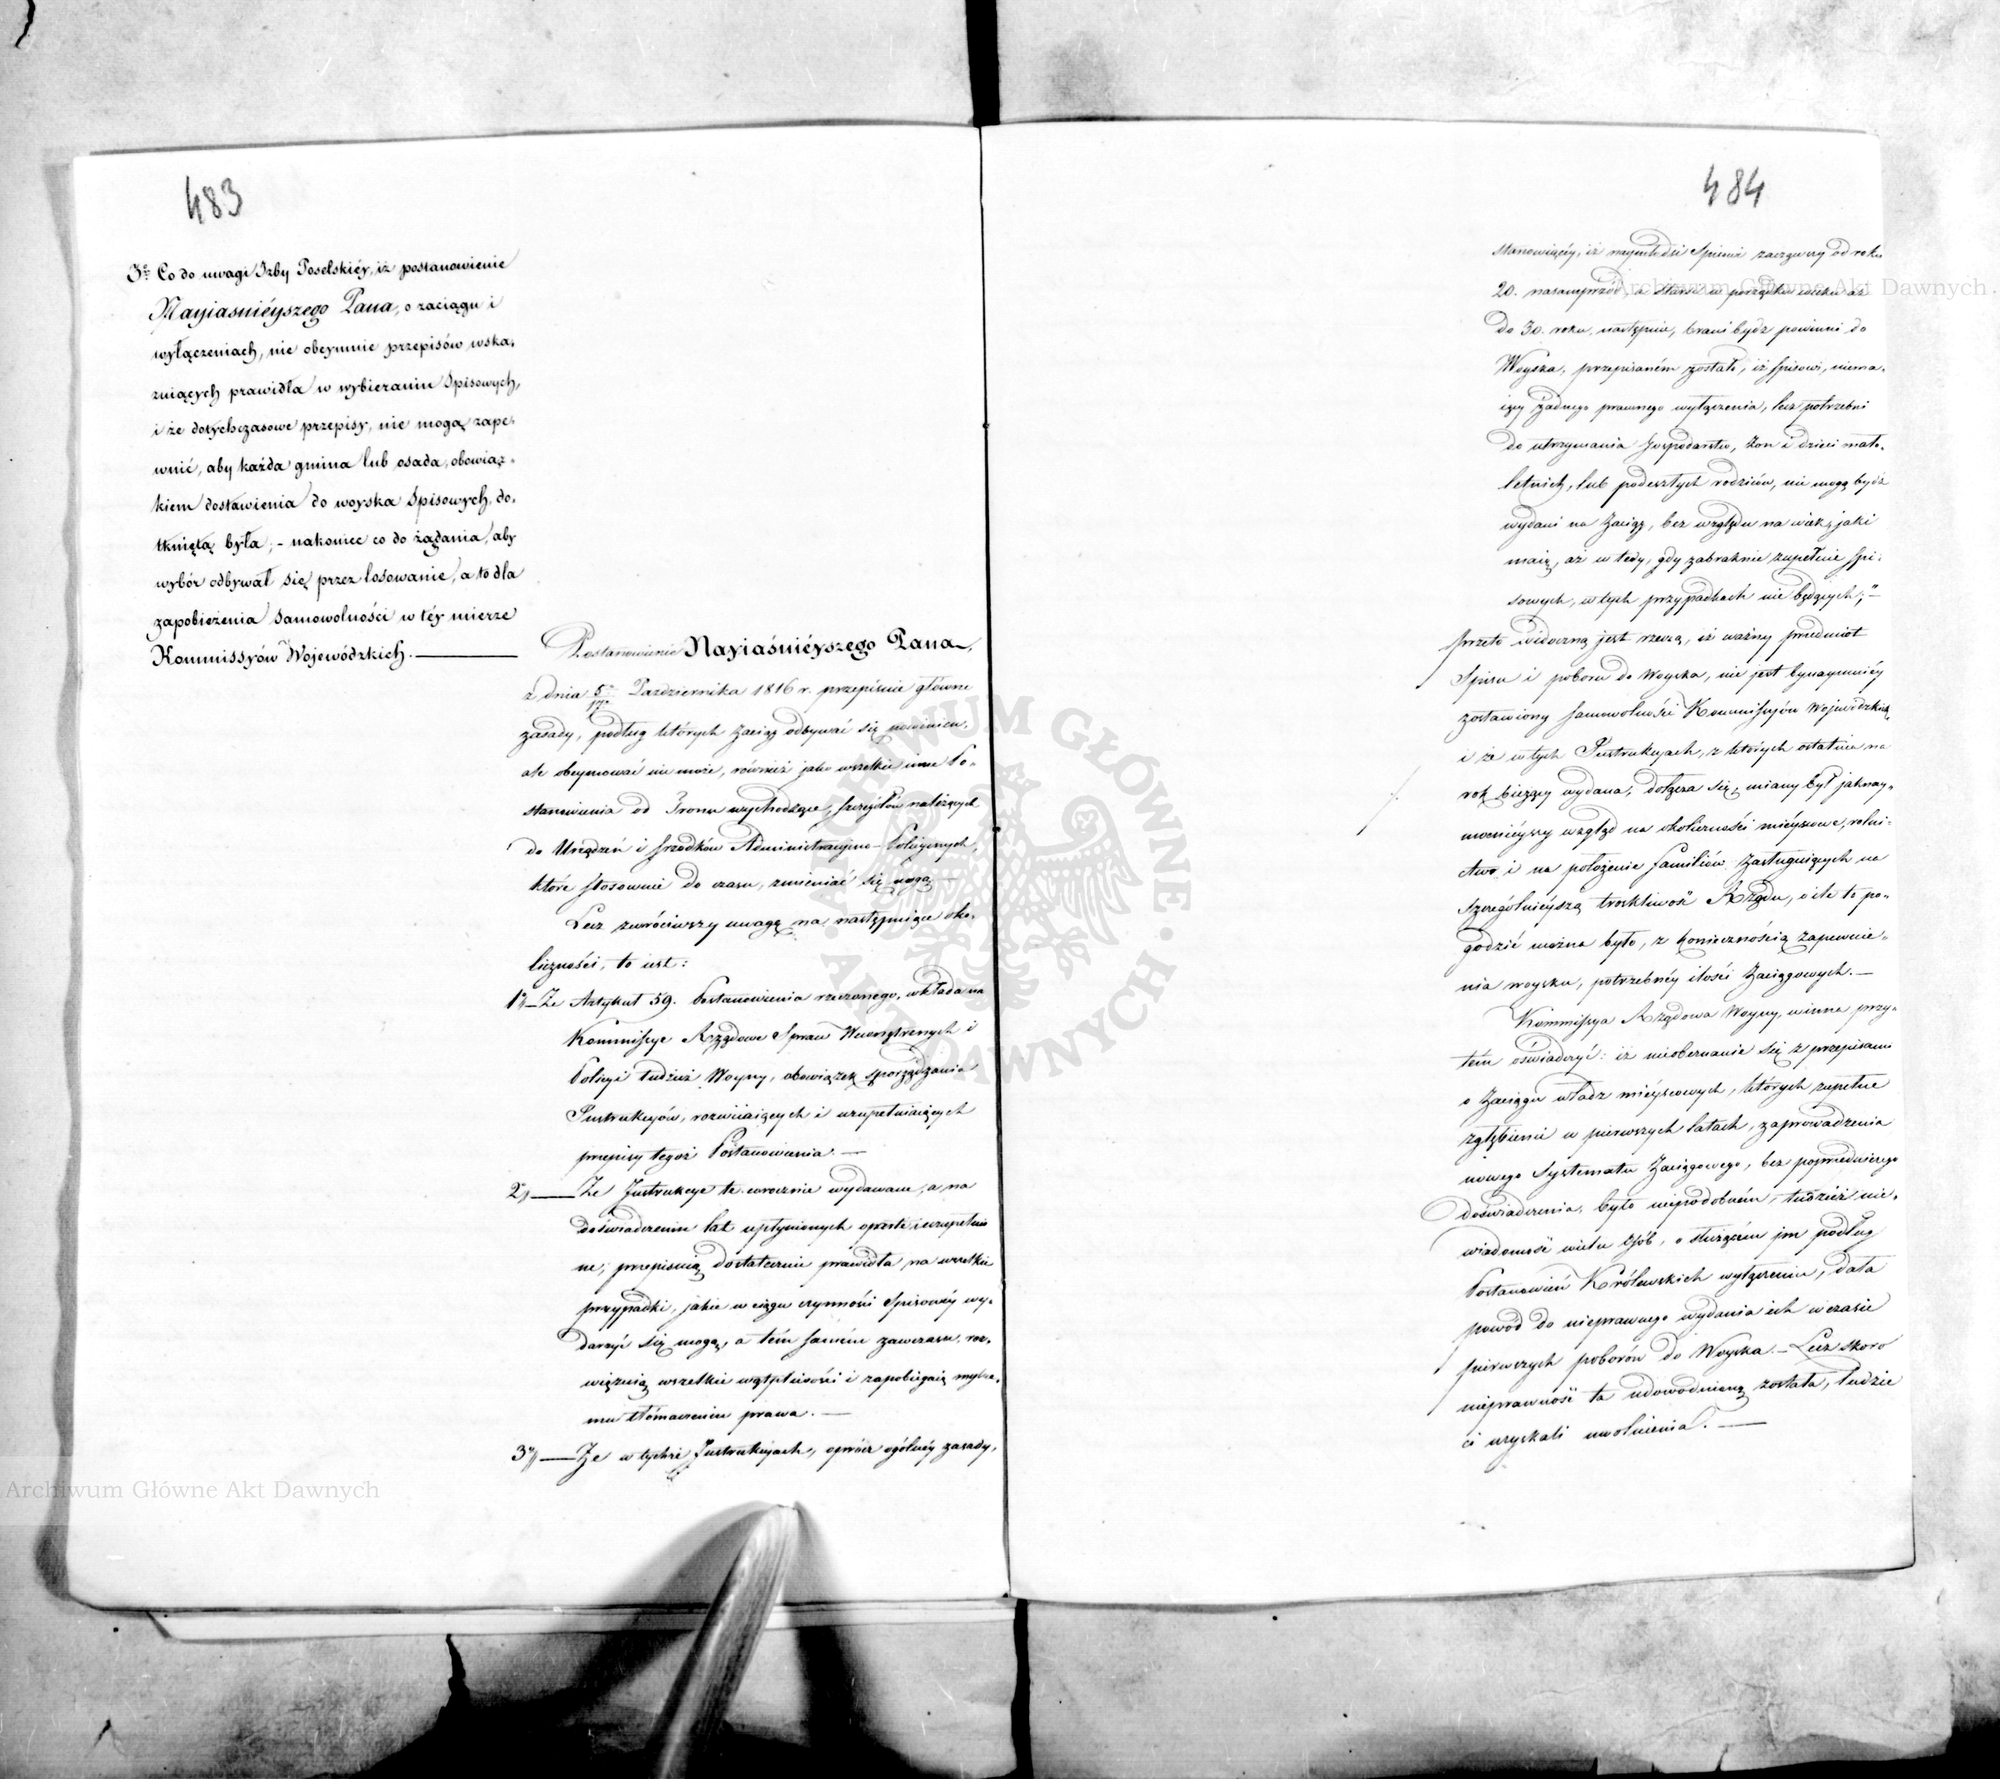 483
3º Co do uwagi Izby Poselskiéy, iż postanowienie
Nayiaśnieyszego Pana, o zaciągu i
wyłączeniach, nie obeymuie przepisów wska,
zuiących prawidła w wybieraniu Spisowych,
i że dotychczasowe przepisy, nie mogą zape,
wnić, aby każda gmina lub osada, obowiąz,
kiem dostawienia do woyska Spisowych, do,
tkniętą była; - nakoniec co do żądania, aby
wybór odbywał się przez losowanie, a to dla
zapobieżenia samowolności w téy mierze
Kommissyów Wojewódzkich.
Postanowienie Nayiaśniéyszego Pana,
z dnia 5/17 Października 1816 r. przepisuie główne
zasady, podług których zaciąg odbywać się powinien,
ale obeymować nie może, również jako wszelkie inne Po-
stanowienia od Tronu wychodzące, szczegółów należących
do Urządzeń i srzodków Administracyjno-Policyjnych,
które stosownie do czasu, zmieniać się mogą. —
Lecz zwróciwszy uwagę na następuiące oko,
liczności, to iest:
1º/ — Że Artykuł 59. Postanowienia rzeczonego, wkłada na
Kommissye Rządowe Spraw Wewnętrznych i
Policyi tudzież Woyny, obowiązek sporządzania
Instrukcyów, rozwiiaiących i uzupełniaiących
przepisy tegoż Postanowienia. —
2º/ — Że Instrukcye te corocznie wydawane, a na
doświadczeniu lat upłynionych oparte i uzupełnio
ne, przepisuią dostatecznie prawidła, na wszelkie
przypadki, jakie w ciągu czynności Spisowéy wy,
darzyć się mogą, a tém samém zawczasu roz,
wiązuią wszelkie wątpliwości i zapobiegaią mylne,
mu tłómaczeniu prawa. —
3º/ — Że w tychże Instrukcyach, oprócz ogólnéy zasady,
484
stanowiącéy, iż naymłodsi Spisowi zacząwszy od roku
20. nasamprzód, a starsi w porządku wieku aż
do 30. roku, następnie, brani bydź powinni do
Woyska, przepisaném zostało, iż spisowi, niema,
iący żadnego prawnego wyłączenia, lecz potrzebni
do utrzymania Gospodarstw, żon i dzieci mało,
letnich, lub podeszłych rodziców, nie mogą bydź
wydani na zaciąg, bez względu na wiek, jaki
maią, aż w tedy, gdy zabraknie zupełnie Spi,
sowych, w tych przypadkach nie będących; —
przeto widoczną jest rzeczą, iż ważny przedmiot
Spisu i poboru do Woyska, nie jest bynaymniéy
zostawiony samowolności Kommissyów Wojewódzkich,
i że w tych Instrukcyach, z których ostatnia na
rok bieżący wydana, dołącza się, miany był jaknay,
mocniéyszy wzgląd na okoliczności miéyscowe, rolni,
ctwo i na położenie familiów zasługuiących na
szczególniéyszą troskliwość Rządu, o ile to po,
godzić można było, z koniecznością zapewnie,
nia woysku, potrzebnéy ilości Zaciągowych. —
Kommissya Rządowa Woyny, winna przy,
tém oświadczyć: iż nieobeznanie się z przepisami
o Zaciągu władz miéyscowych, których zupełne
zgłębienie w pierwszych latach, zaprowadzenia
nowego Systematu Zaciągowego, bez poprzedniczego
doświadczenia, było niepodobném, tudzież nie,
wiadomość wielu osób, o służącém im podług
Postanowień Królewskich wyłączeniu, dała
powód do nieprawnego wydania ich w czasie
pierwszych poborów do Woyska. — Lecz skoro
nieprawność ta udowodnioną została, ludzie
ci uzyskali uwolnienia. —
Archiwum Główne Akt Dawnych
Archiwum Główne Akt Dawnych
ARCHIWUM GŁÓWNE
AKT DAWNYCH